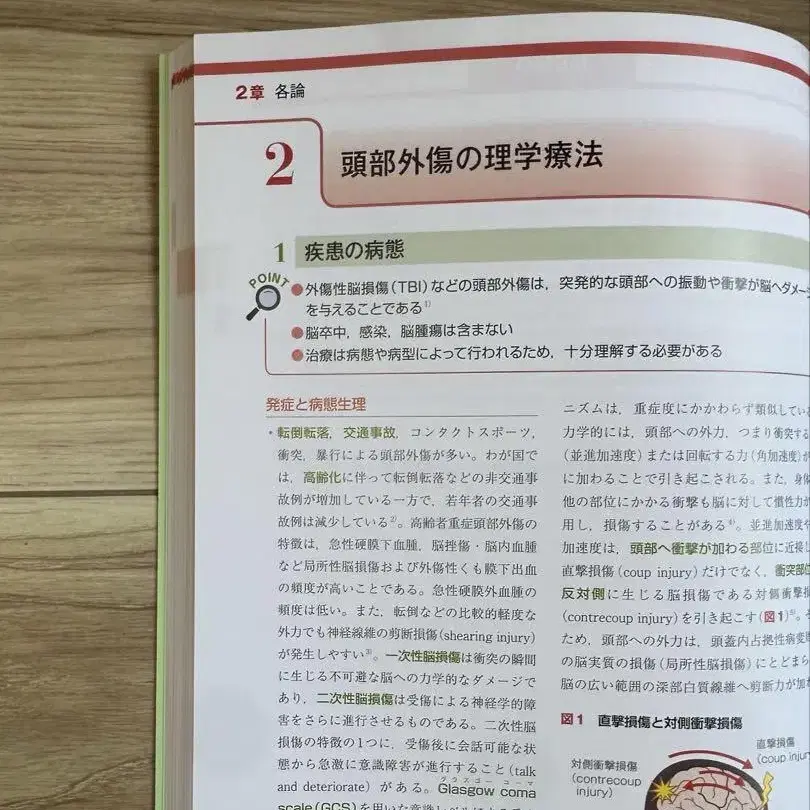 2章 各論
2 頭部外傷の理学療法
1 疾患の病態
POINT
●外傷性脳損傷(TBI)などの頭部外傷は，突発的な頭部への振動や衝撃が脳へダメージ
を与えることである1)
●脳卒中，感染，脳腫瘍は含まない
●治療は病態や病型によって行われるため，十分理解する必要がある
発症と病態生理
・転倒転落，交通事故，コンタクトスポーツ，
衝突，暴行による頭部外傷が多い。わが国で
は，高齢化に伴って転倒転落などの非交通事
故例が増加している一方で，若年者の交通事
故例は減少している2)。高齢者重症頭部外傷の
特徴は，急性硬膜下血腫，脳挫傷・脳内血腫
など局所性脳損傷および外傷性くも膜下出血
の頻度が高いことである。急性硬膜外血腫の
頻度は低い。また，転倒などの比較的軽度な
外力でも神経線維の剪断損傷(shearing injury)
が発生しやすい3)。一次性脳損傷は衝突の瞬間
に生じる不可避な脳への力学的なダメージで
あり，二次性脳損傷は受傷による神経学的障
害をさらに進行させるものである。二次性脳
損傷の特徴の1つに，受傷後に会話可能な状
態から急激に意識障害が進行すること(talk
and deteriorate)がある。Glasgow coma
グラスゴー コーマ
scale(GCS)を用いた意識レベルによる
ニズムは，重症度にかかわらず類似してい
力学的には，頭部への外力，つまり衝突する
(並進加速度)または回転する力(角加速度)が
に加わることで引き起こされる。また，身体
他の部位にかかる衝撃も脳に対して慣性力が
用し，損傷することがある4)。並進加速度や
加速度は，頭部へ衝撃が加わる部位に近接し
直撃損傷(coup injury)だけでなく，衝突部位
反対側に生じる脳損傷である対側衝撃損
(contrecoup injury)を引き起こす(図1)5)。そ
ため，頭部への外力は，頭蓋内占拠性病変
の脳実質の損傷(局所性脳損傷)にとどまら
脳の広い範囲の深部白質線維へ剪断力が加わ
図1 直撃損傷と対側衝撃損傷
直撃損傷
(coup injury
対側衝撃損傷
(contrecoup
injury)